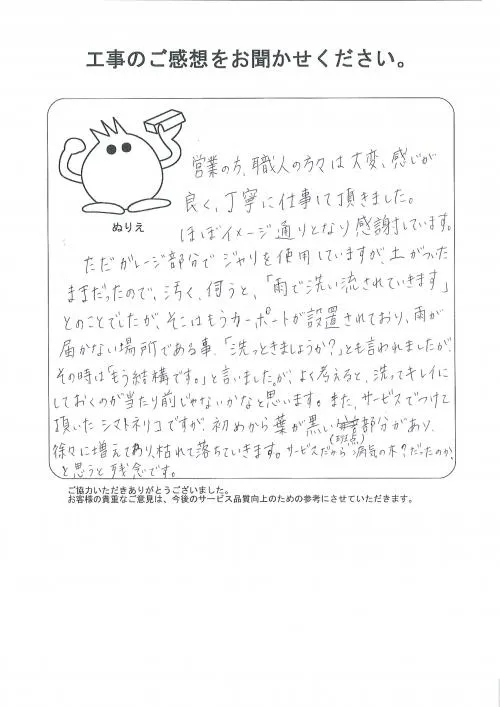 工事のご感想をお聞かせください。
ぬりえ
営業の方、職人の方々は大変、感じが
良く、丁寧に仕事して頂きました。
ほぼイメージ通りとなり感謝しています。
ただガレージ部分でジャリを使用していますが、土がついた
ままだったので、汚く、伺うと、「雨で洗い流されていきます」
とのことでしたが、そこはもうカーポートが設置されており、雨が
届かない場所である事、「洗っときましょうか?」とも言われましたが、
その時は「もう結構です。」と言いましたが、よく考えると、洗ってキレイに
しておくのが当たり前じゃないかなと思います。また、サービスでつけて
頂いたシマトネリコですが、初めから葉が黒い部分があり、
(斑点)
徐々に増えており、枯れて落ちていきます。サービスだから病気の木?だったのか、
と思うと残念です。
ご協力いただきありがとうございました。
お客様の貴重なご意見は、今後のサービス品質向上のための参考にさせていただきます。